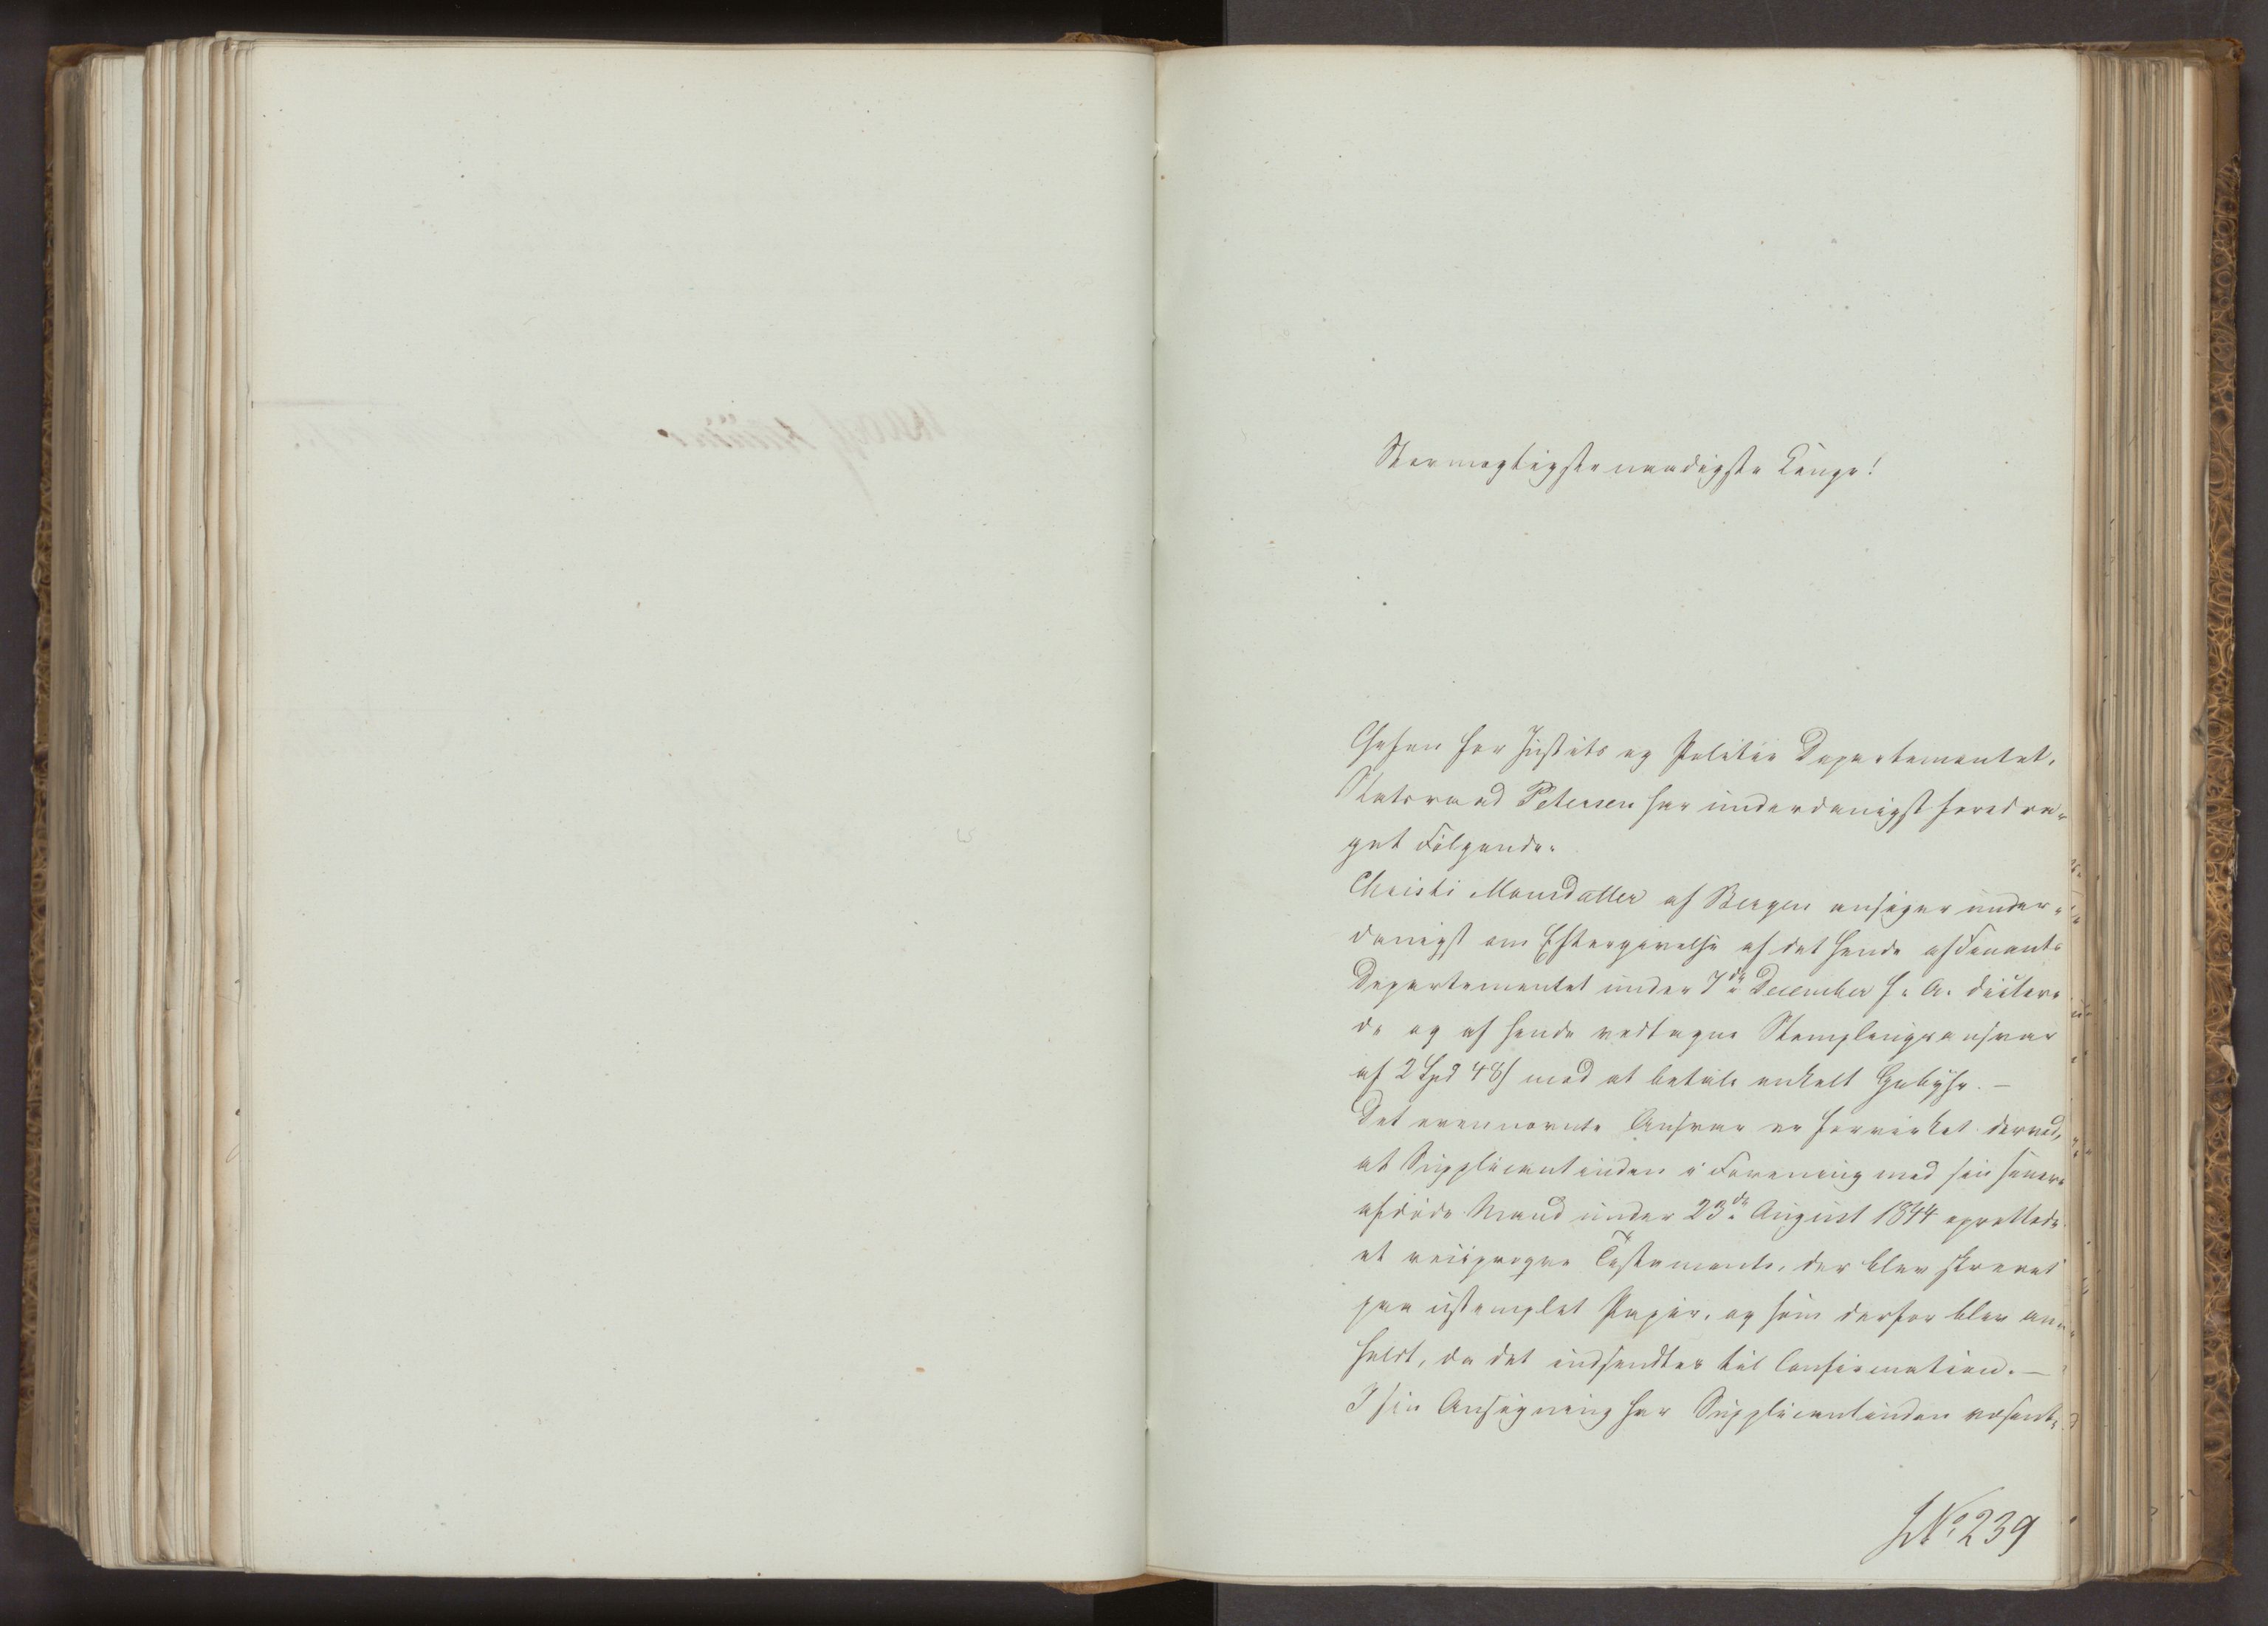 Stormægtigste naadigste Konge!
Chefen for Justits og Politie Departementet,
Statsraad Petersen har underdanigst foredra-
get Følgende:
Christi Monsdatter af Bergen ansøger under-
danigst om Eftergivelse af det hende af Finants
Departementet under 7de December f. A. dictere-
de og af hende vedtagne Stemplingsansvar
af 2 Spd 48 s mod at betale enkelt Gebyhr. —
Det ovennævnte Ansvar er forvirket derved,
at Supplicantinden i Forening med sin senere
afdøde Mand under 23de August 1844 oprettede
et reciproqve Testamente, der blev skrevet
paa ustemplet Papir, og som derfor blev an-
holdt, da det indsendtes til Confirmation. —
I sin Ansøgning har Supplicantinden væsent-
No 239